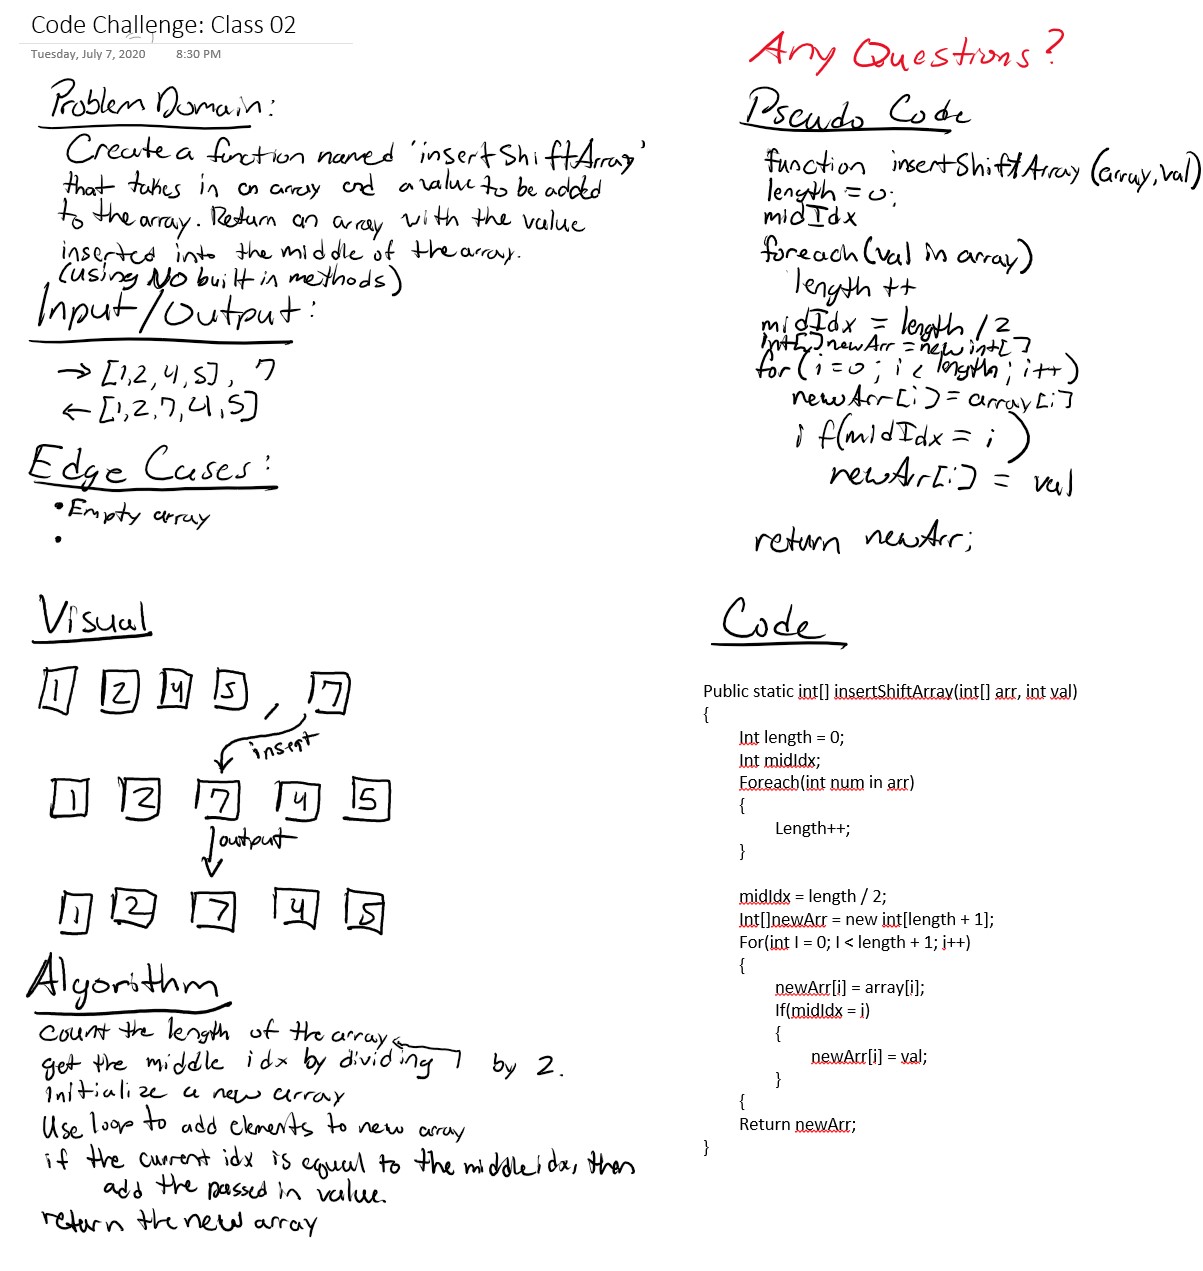 Code Challenge: Class 02
Tuesday, July 7, 2020 8:30 PM
Problem Domain:
Create a function named 'insertShiftArray'
that takes in an array and a value to be added
to the array. Return an array with the value
inserted into the middle of the array.
(using NO built in methods)
Input/Output:
→ [1,2,4,5], 7
← [1,2,7,4,5]
Edge Cases:
• Empty array
•
Visual
1 2 4 5 , 7
insert
1 2 7 4 5
output
1 2 7 4 5
Algorithm
count the length of the array
get the middle idx by dividing by 2.
Initialize a new array
Use loop to add elements to new array
if the current idx is equal to the middle idx, then
add the passed in value.
return the new array
Any Questions?
Pseudo Code
function insertShiftArray (array, val)
length = 0;
midIdx
foreach (val in array)
length ++
midIdx = length / 2
int[] newArr = new int[]
for (i = 0; i < length; i++)
newArr[i] = array[i]
if(midIdx = i)
newArr[i] = val
return newArr;
Code
Public static int[] insertShiftArray(int[] arr, int val)
{
Int length = 0;
Int midIdx;
Foreach(int num in arr)
{
Length++;
}
midIdx = length / 2;
Int[]newArr = new int[length + 1];
For(int I = 0; I < length + 1; i++)
{
newArr[i] = array[i];
If(midIdx = i)
{
newArr[i] = val;
}
{
Return newArr;
}